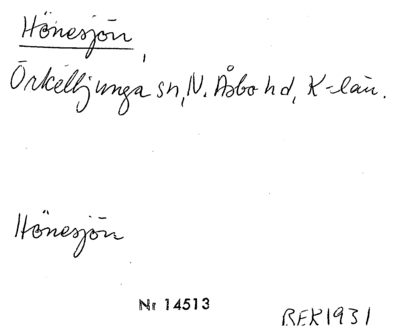 Hönesjön,
Örkelljunga sn, N. Åsbo hd, K-län.
Hönesjön
Nr 14513
BEK1931